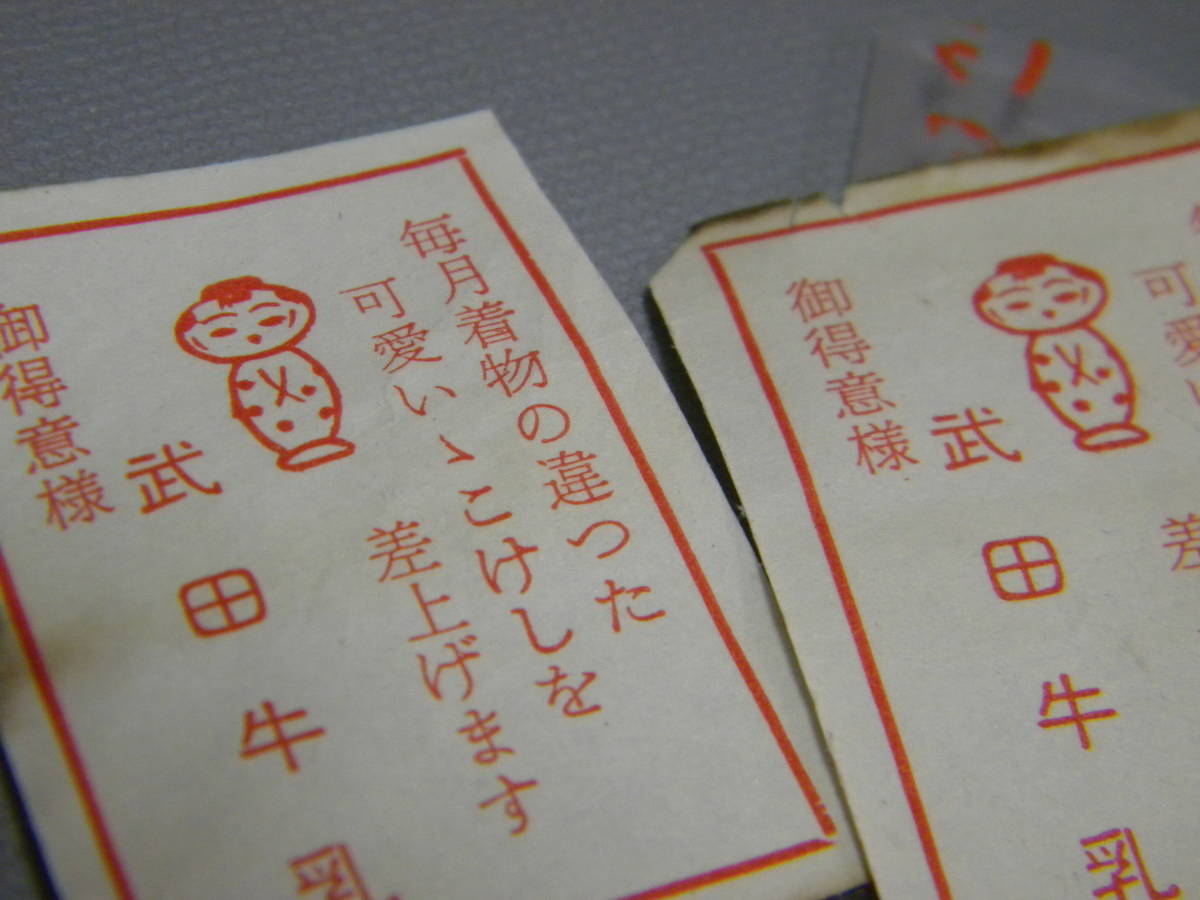 毎月着物の違つた
可愛いゝこけしを
差上げます
武田牛乳
御得意様
可愛い
差
武田牛乳
御得意様